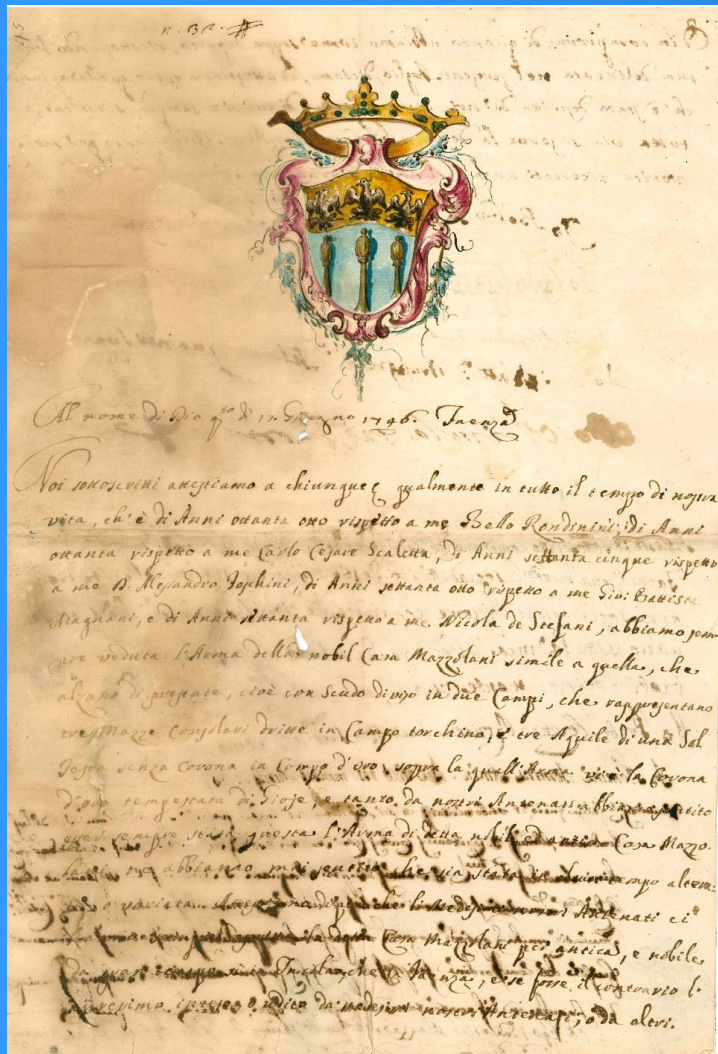 n. 32. #
Al nome di Dio q.to dì 17. Giugno 1746. Faenza
Noi sottoscritti attestiamo a chiunque qualmente in tutto il tempo di nostra
vita, ch'è di Anni ottanta otto rispetto a me Bello Rondinini, di Anni
ottanta rispetto a me Carlo Cesare Scaletta, di Anni settanta cinque rispetto
a me D. Alessandro di Anni settanta otto rispetto a me Battista
Magnani, e di Anni rispetto a me Nicola de Stefani, abbiamo sem
pre veduta l'Arma della nobil Casa Mazzolani simile a quella, che
alzano di presente, cioè con Scudo diviso in due Campi, che rappresentano
tre Mazze Consolari dritte in Campo torchino, e tre Aquile di una Sol
Testa senza Corona in Campo d'oro, sopra la quall'Arma vi è la Corona
d'oro tempestata di Gioje, e tanto da nostri Antenati abbiamo sentito
sempre stata questa l'Arma di detta nobil ed antica Casa Mazzo
lani, ne abbiamo mai sentito che sia stata in alcun tempo altera
ta, o variata che li medesimi nostri Antenati ci
la detta Casa Mazzolani per antica, e nobile
che in Faenza, e se fosse il contrario l'
inteso, o udito da medesimi nostri Antenati, o da altri.